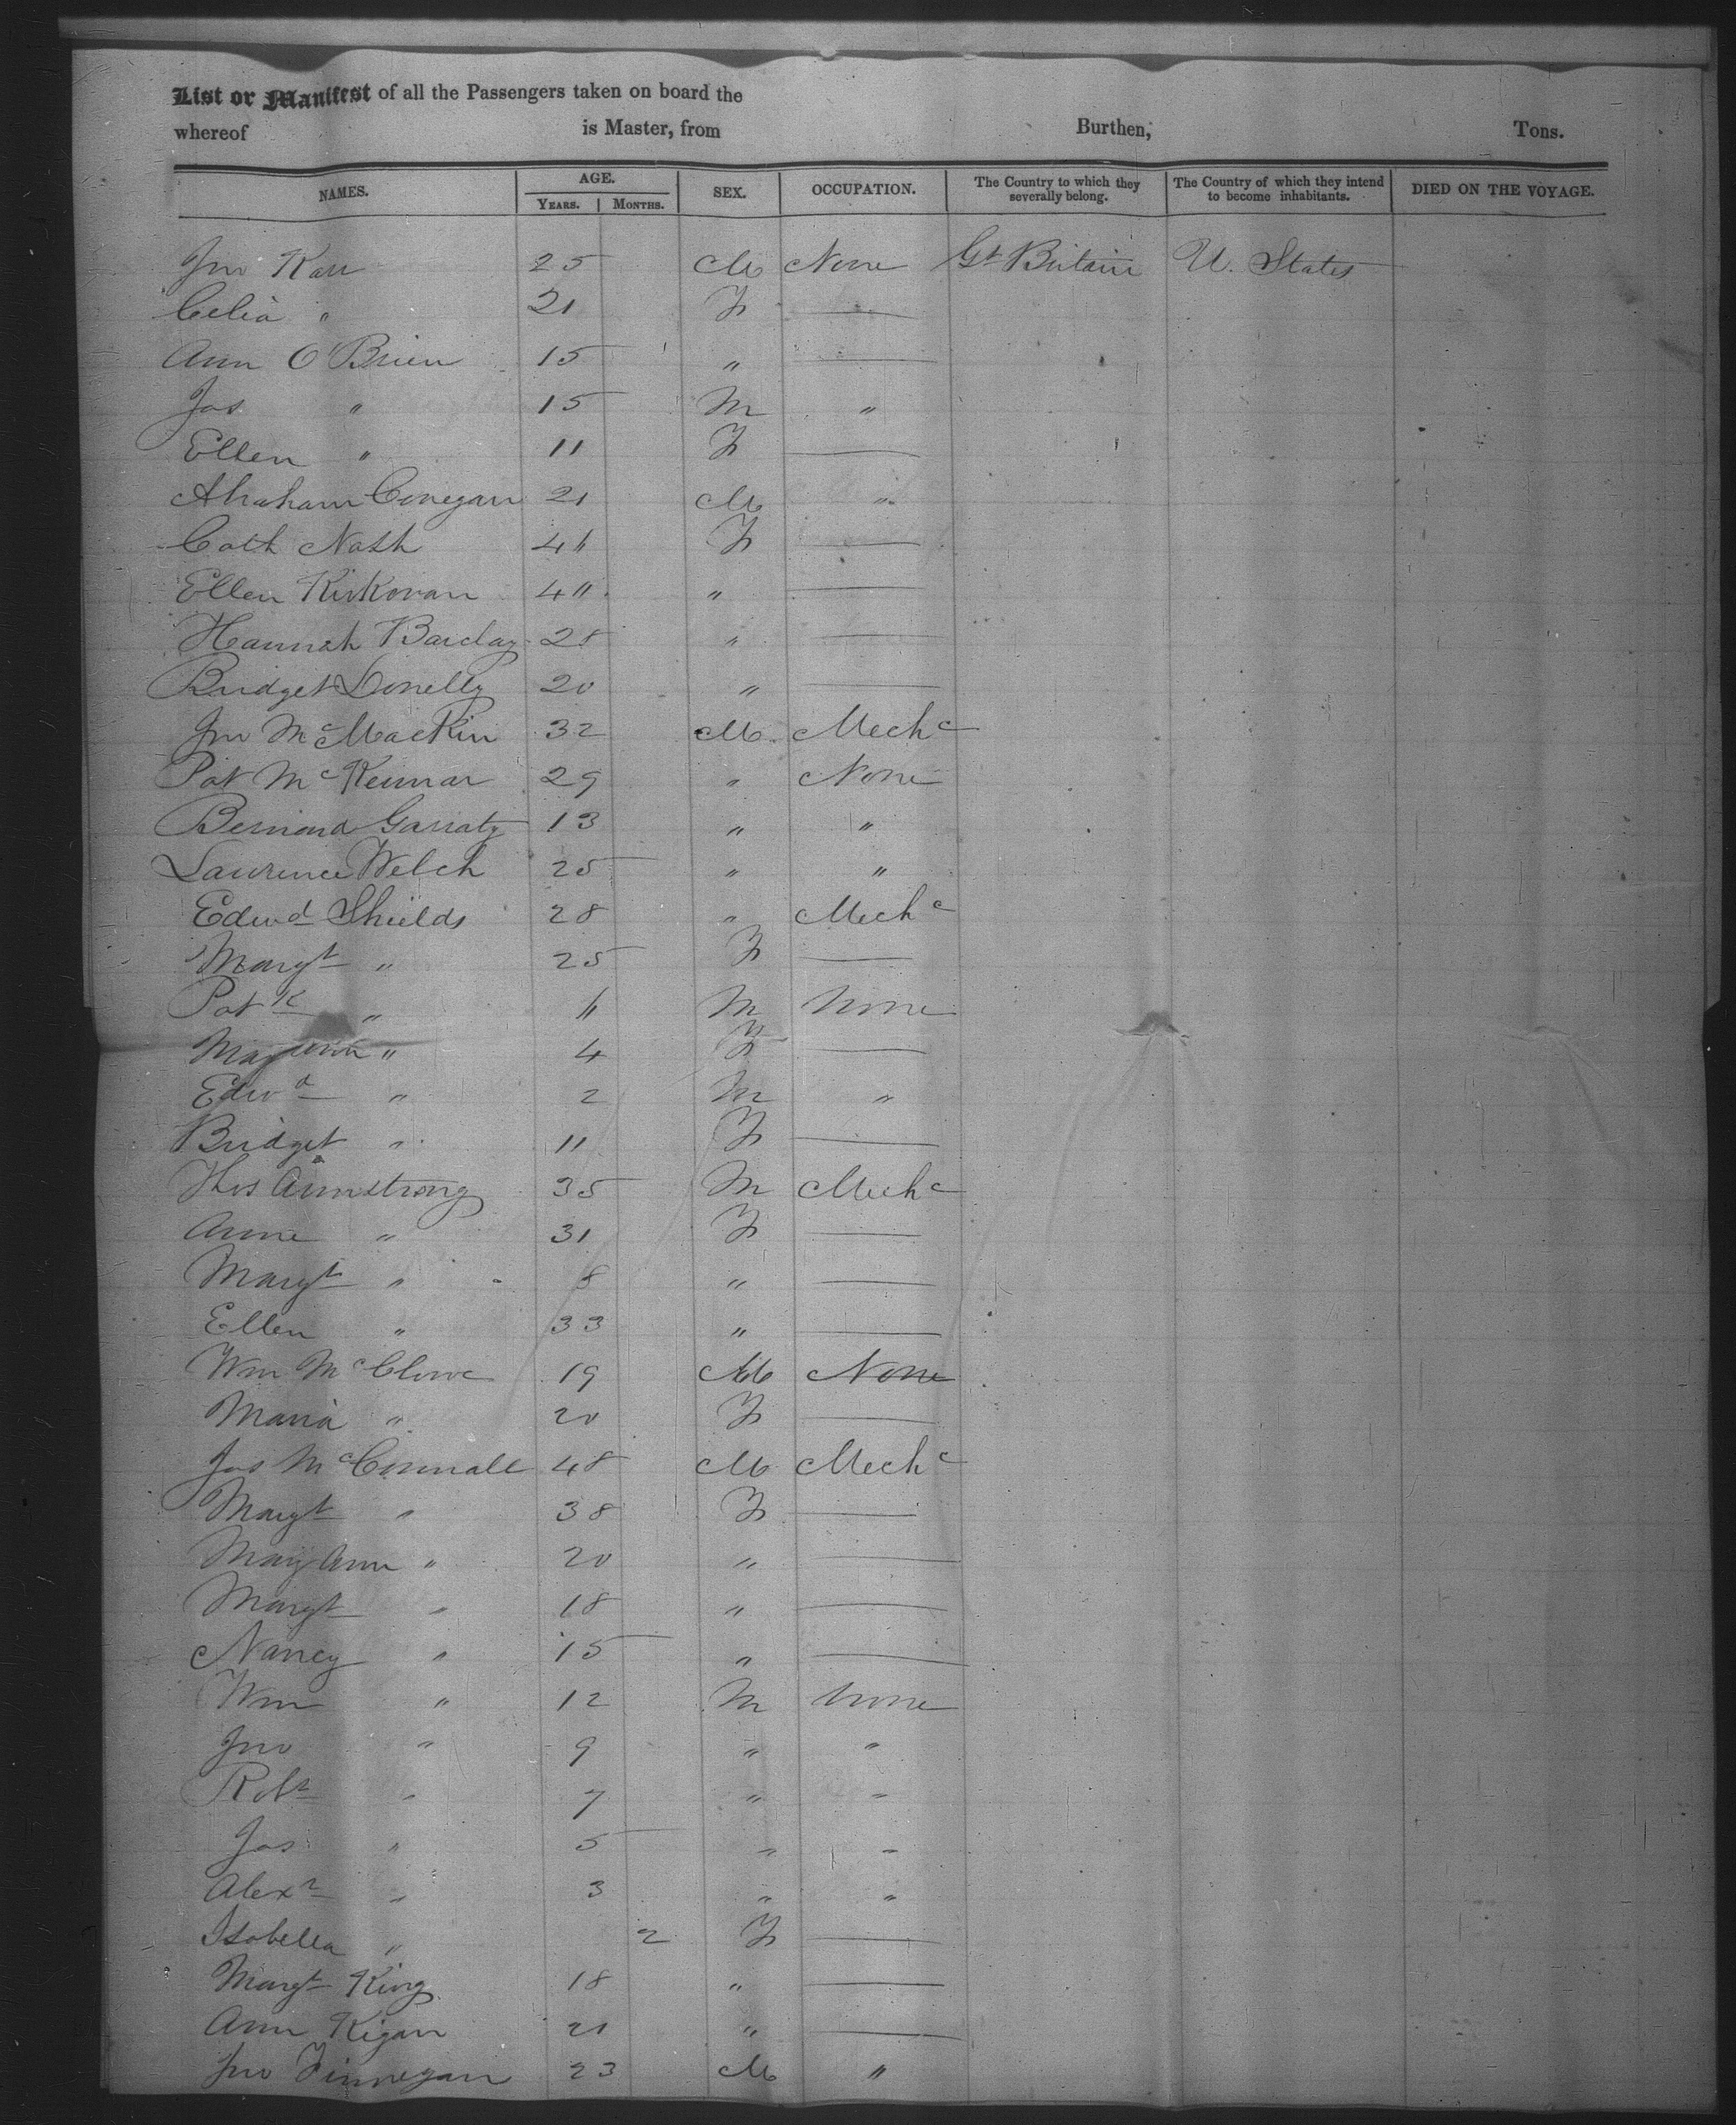 List or Manifest of all the Passengers taken on board the
whereof is Master, from Burthen, Tons.
NAMES. AGE. YEARS. MONTHS. SEX. OCCUPATION. The Country to which they severally belong. The Country of which they intend to become inhabitants. DIED ON THE VOYAGE.
Jno Karr 25 M None Gt Britain U. States
Celia " 21 F —
Ann O'Brien 15 " —
Jas " 15 M "
Ellen " 11 F —
Abraham Conegan 21 M "
Cath Nash F —
Ellen " —
Hannah Barclay 28 " —
Bridget Donelly 20 " —
Jno McMackin 32 M Mechc
Pat 29 " None
Bernard Garraty 13 " "
Laurence Welch 25 " "
Edwd Shields 28 " Mechc
Margt " 25 F —
Patk " M None
" 4 F —
Edwd " 2 M "
Bridget " 11 F —
Thos Armstrong 35 M Mechc
Anne " 31 F —
Margt " 8 " —
Ellen " 33 " —
Wm 19 M None
Maria " 20 F —
Jas McConnall 48 M Mechc
Margt " 38 F —
Mary Ann " 20 " —
Margt " 18 " —
Nancy " 15 " —
Wm " 12 M None
Jno " 9 " "
Robt " 7 " "
Jas " 5 " "
Alexr " 3 " "
Isabella " 2 F —
Margt King 18 " —
Ann Kigan 21 " —
Jno Finnegan 23 M "